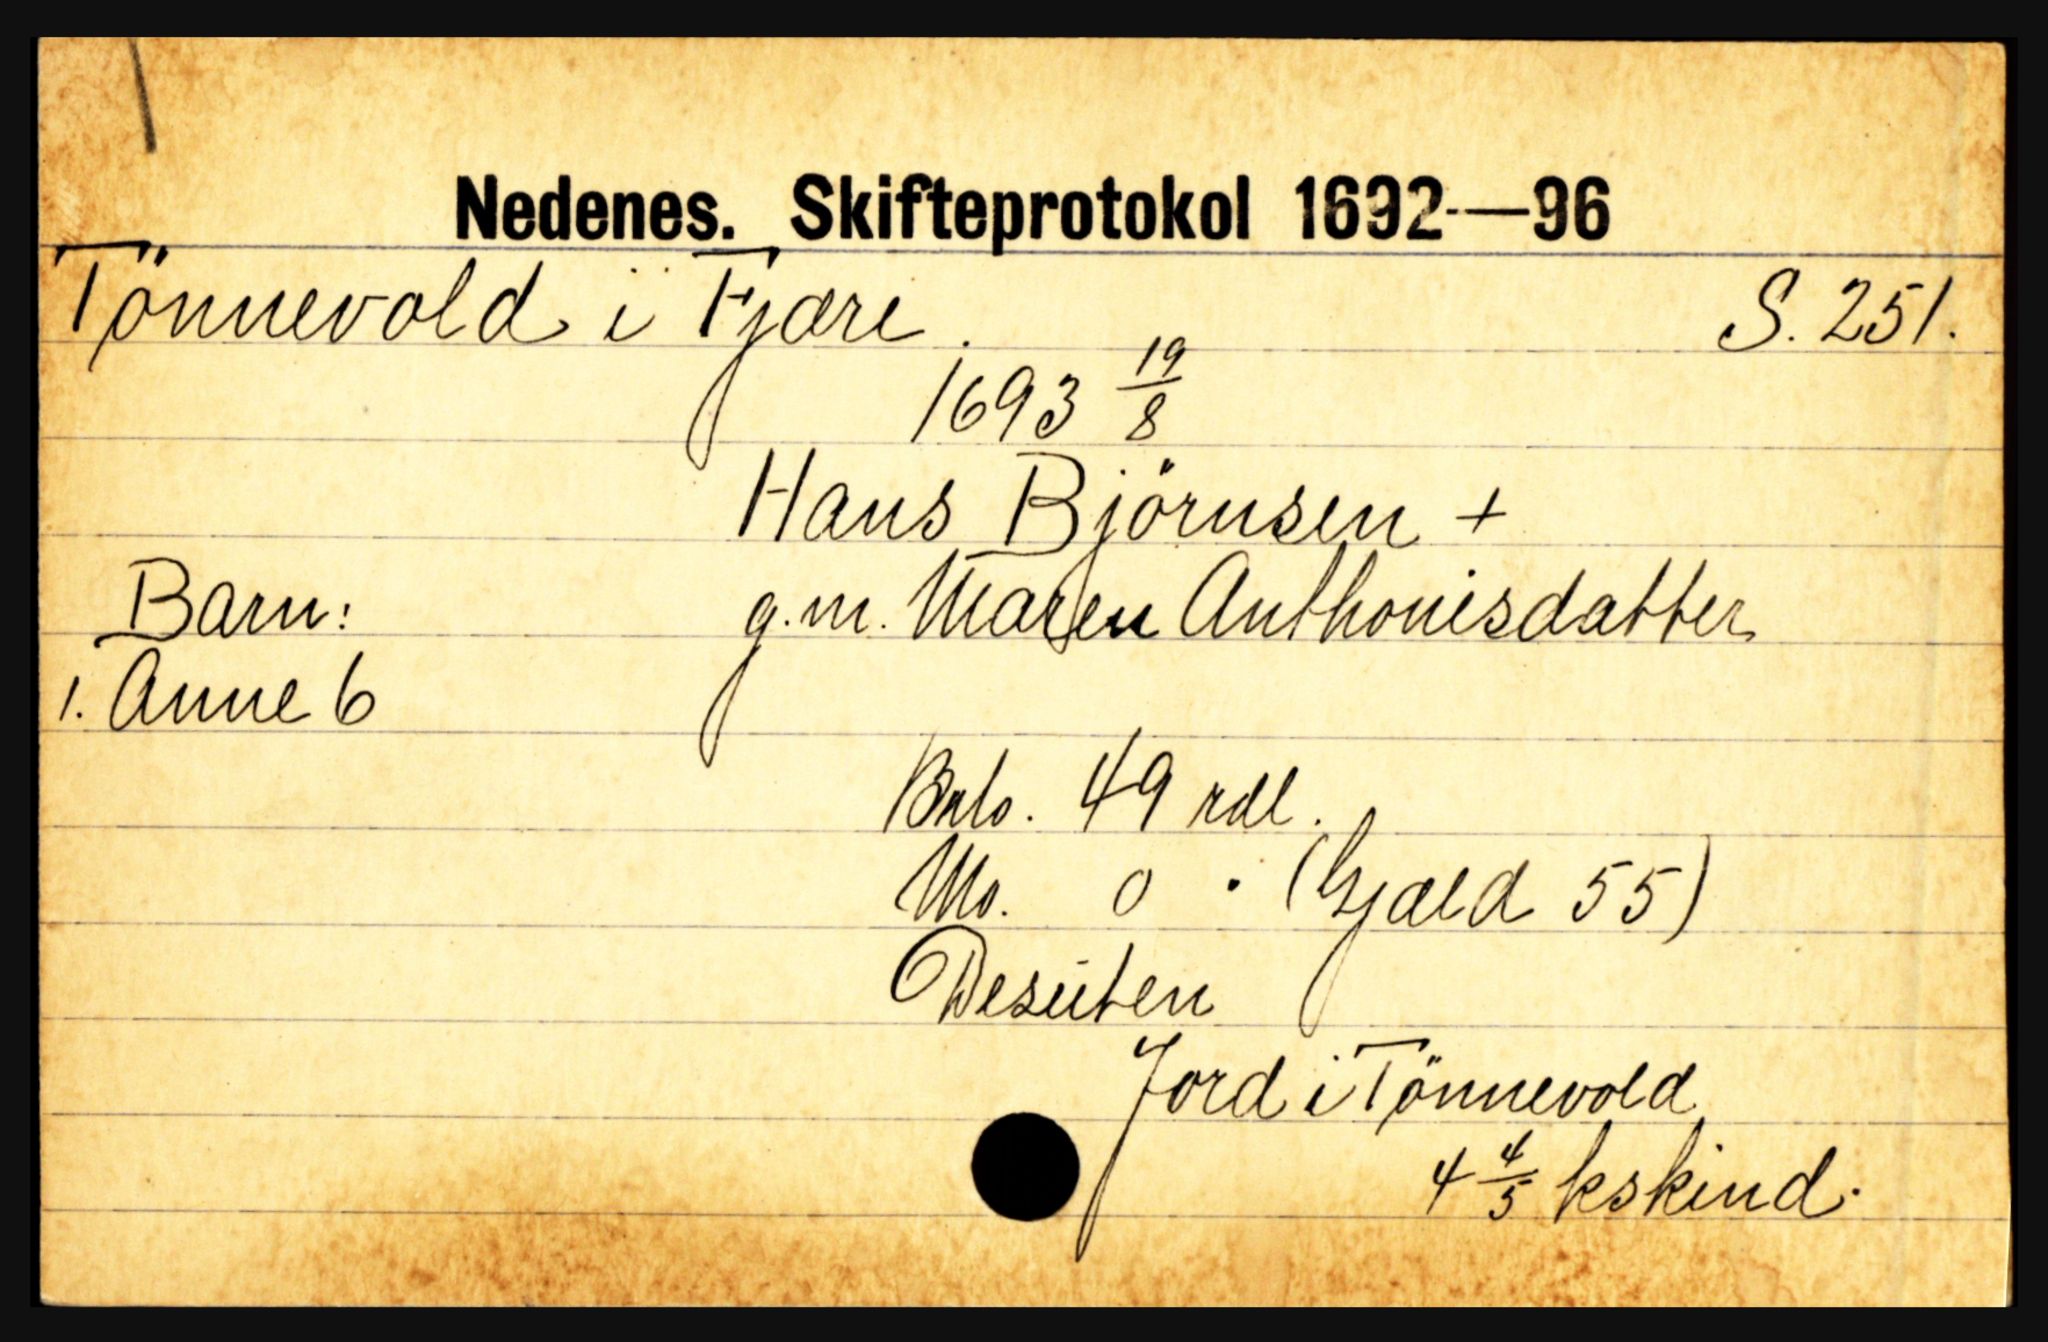 Nedenes. Skifteprotokol 1692—96
Tönnevold i Fjære. S. 251.
1693 19/8
Hans Björnsen +
g.m. Maren Anthonisdatter
Barn:
1. Anne 6
Bnlo. 49 rdl.
Mo. 0 . (Gjæld 55)
Desuten
Jord i Tönnevold
4 4/5 kskind.